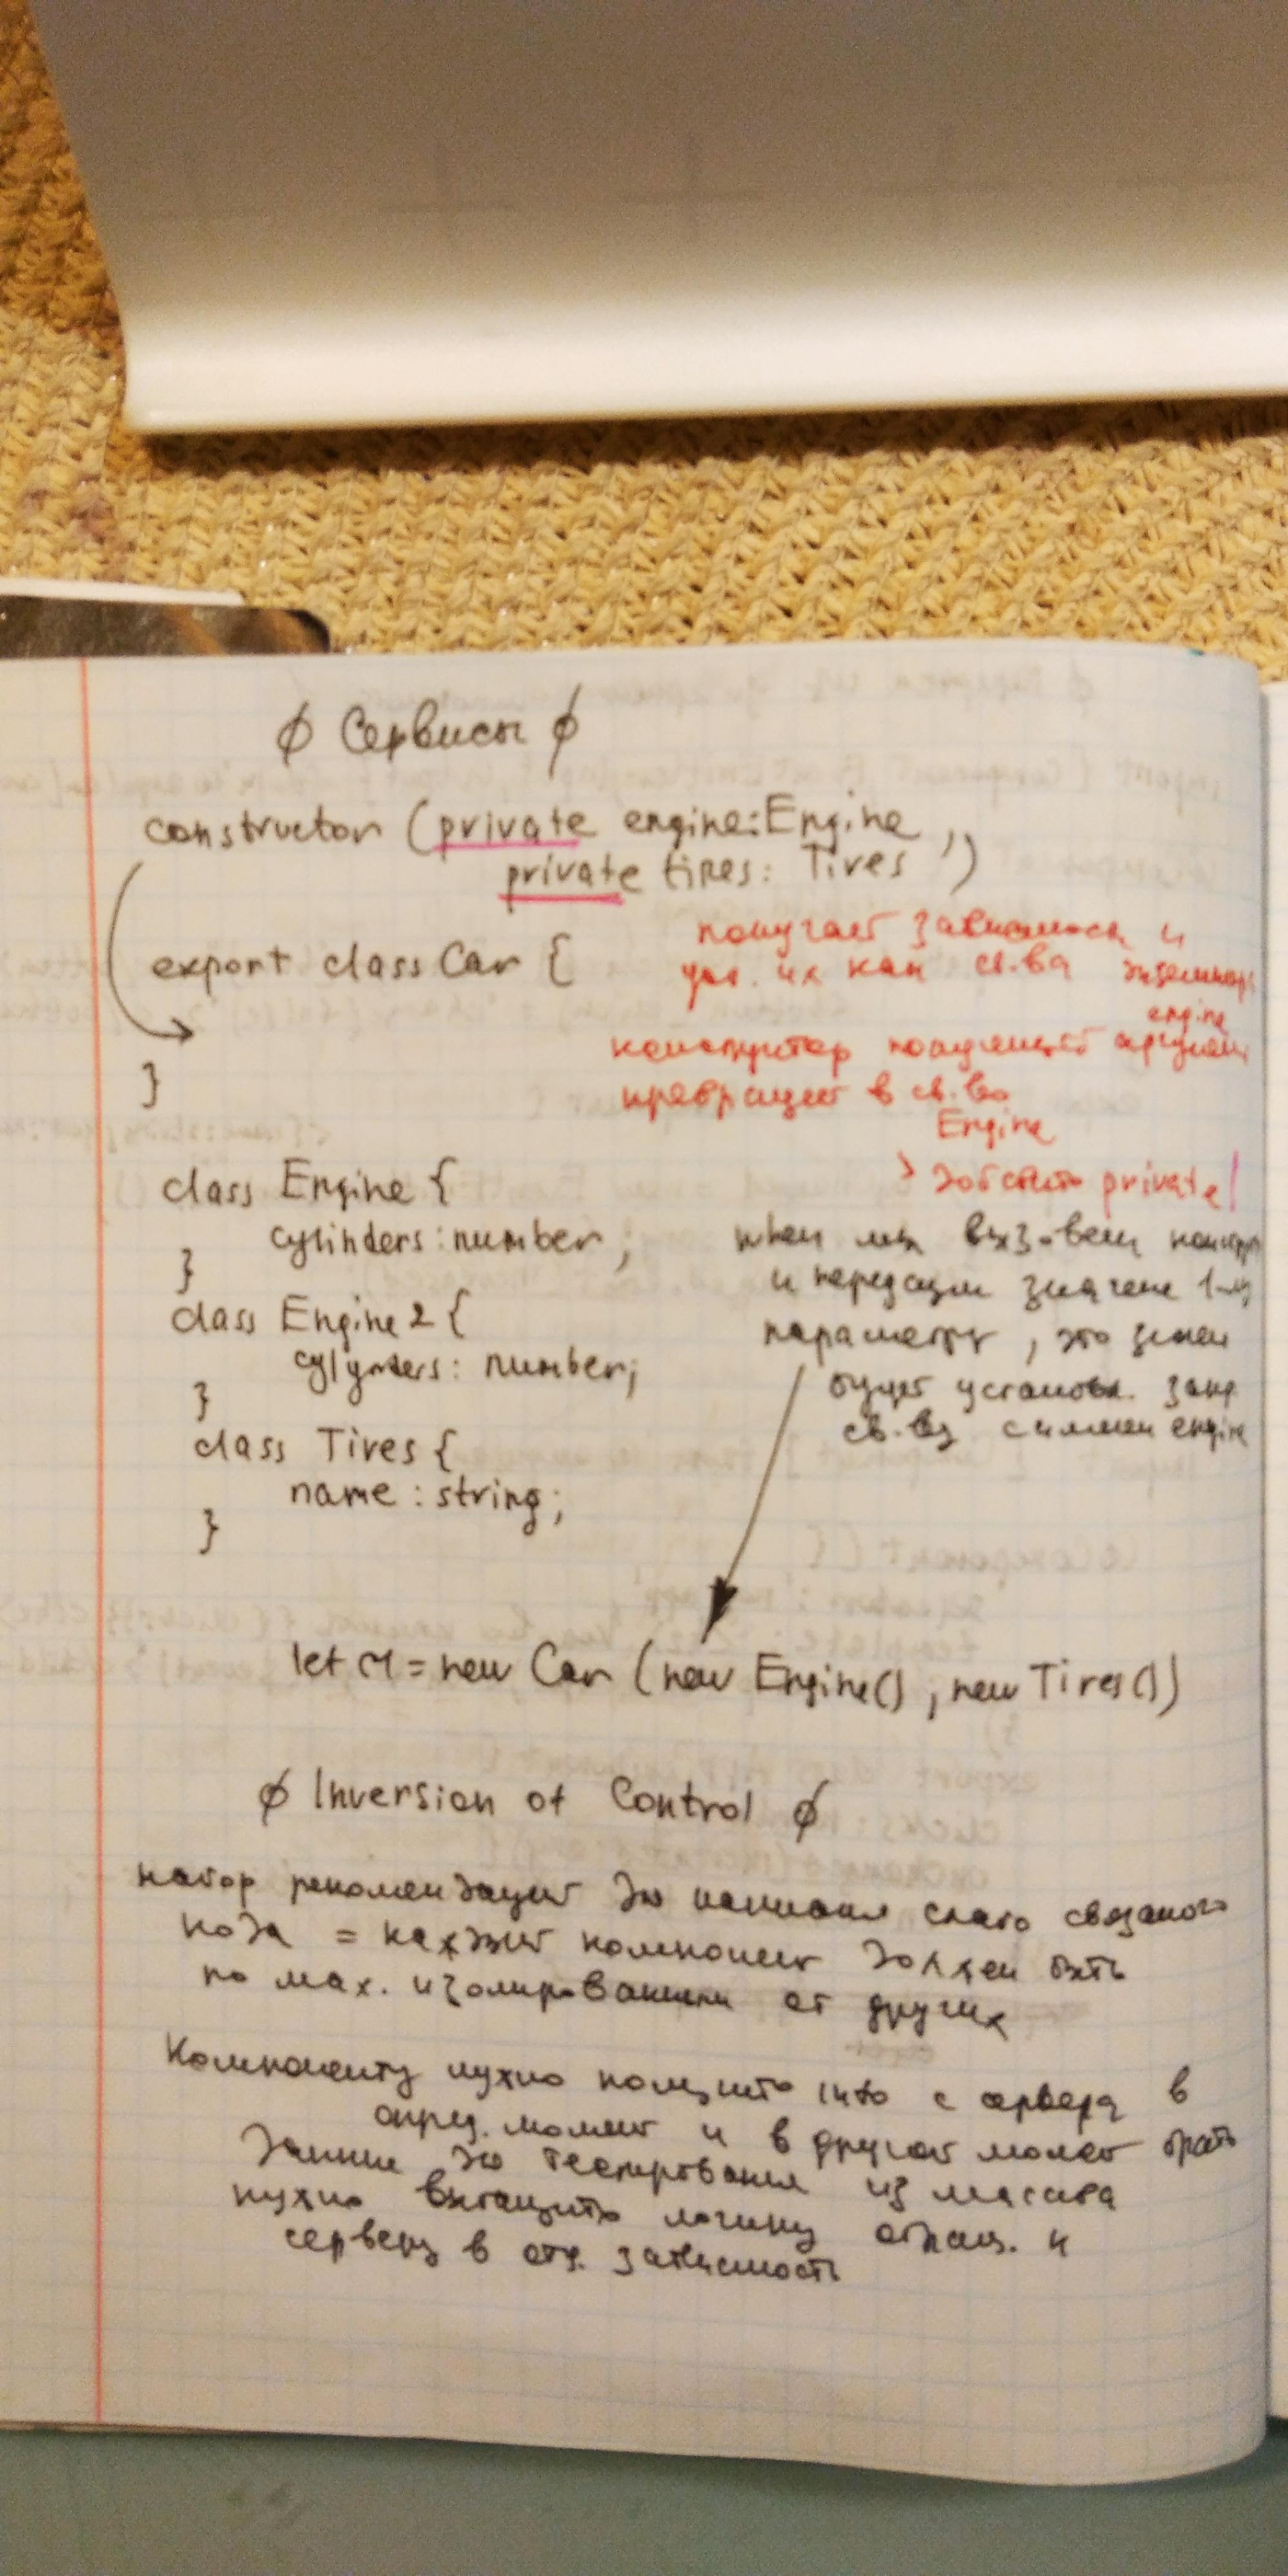 ϕ Сервисы ϕ
constructor (private engine:Engine,
private tires: Tires)
export class Car {
получает зависимость и
уст. их как св.ва экземпляр
engine
конструктор полученный аргумент
превращает в св.во
Engine
private!
}
class Engine {
cylinders: number;
}
class Engine 2 {
cylynders: number;
}
class Tires {
name: string;
}
when мы вызовем констр
и передадим значение 1-му
параметру, это значен
будет установл. закр
св.ву с именем engine
let c1 = new Car (new Engine(), new Tires())
ϕ Inversion of Control ϕ
набор рекомендаций для написания слабо связаного
кода = каждый компонент должен быть
по мах. изолированным от других
Компоненту нужно получить info с сервера в
опред. момент и в другой момент брать
данные для тестирования из массива
нужно вытащить логику обращ. к
серверу в отд. зависимость